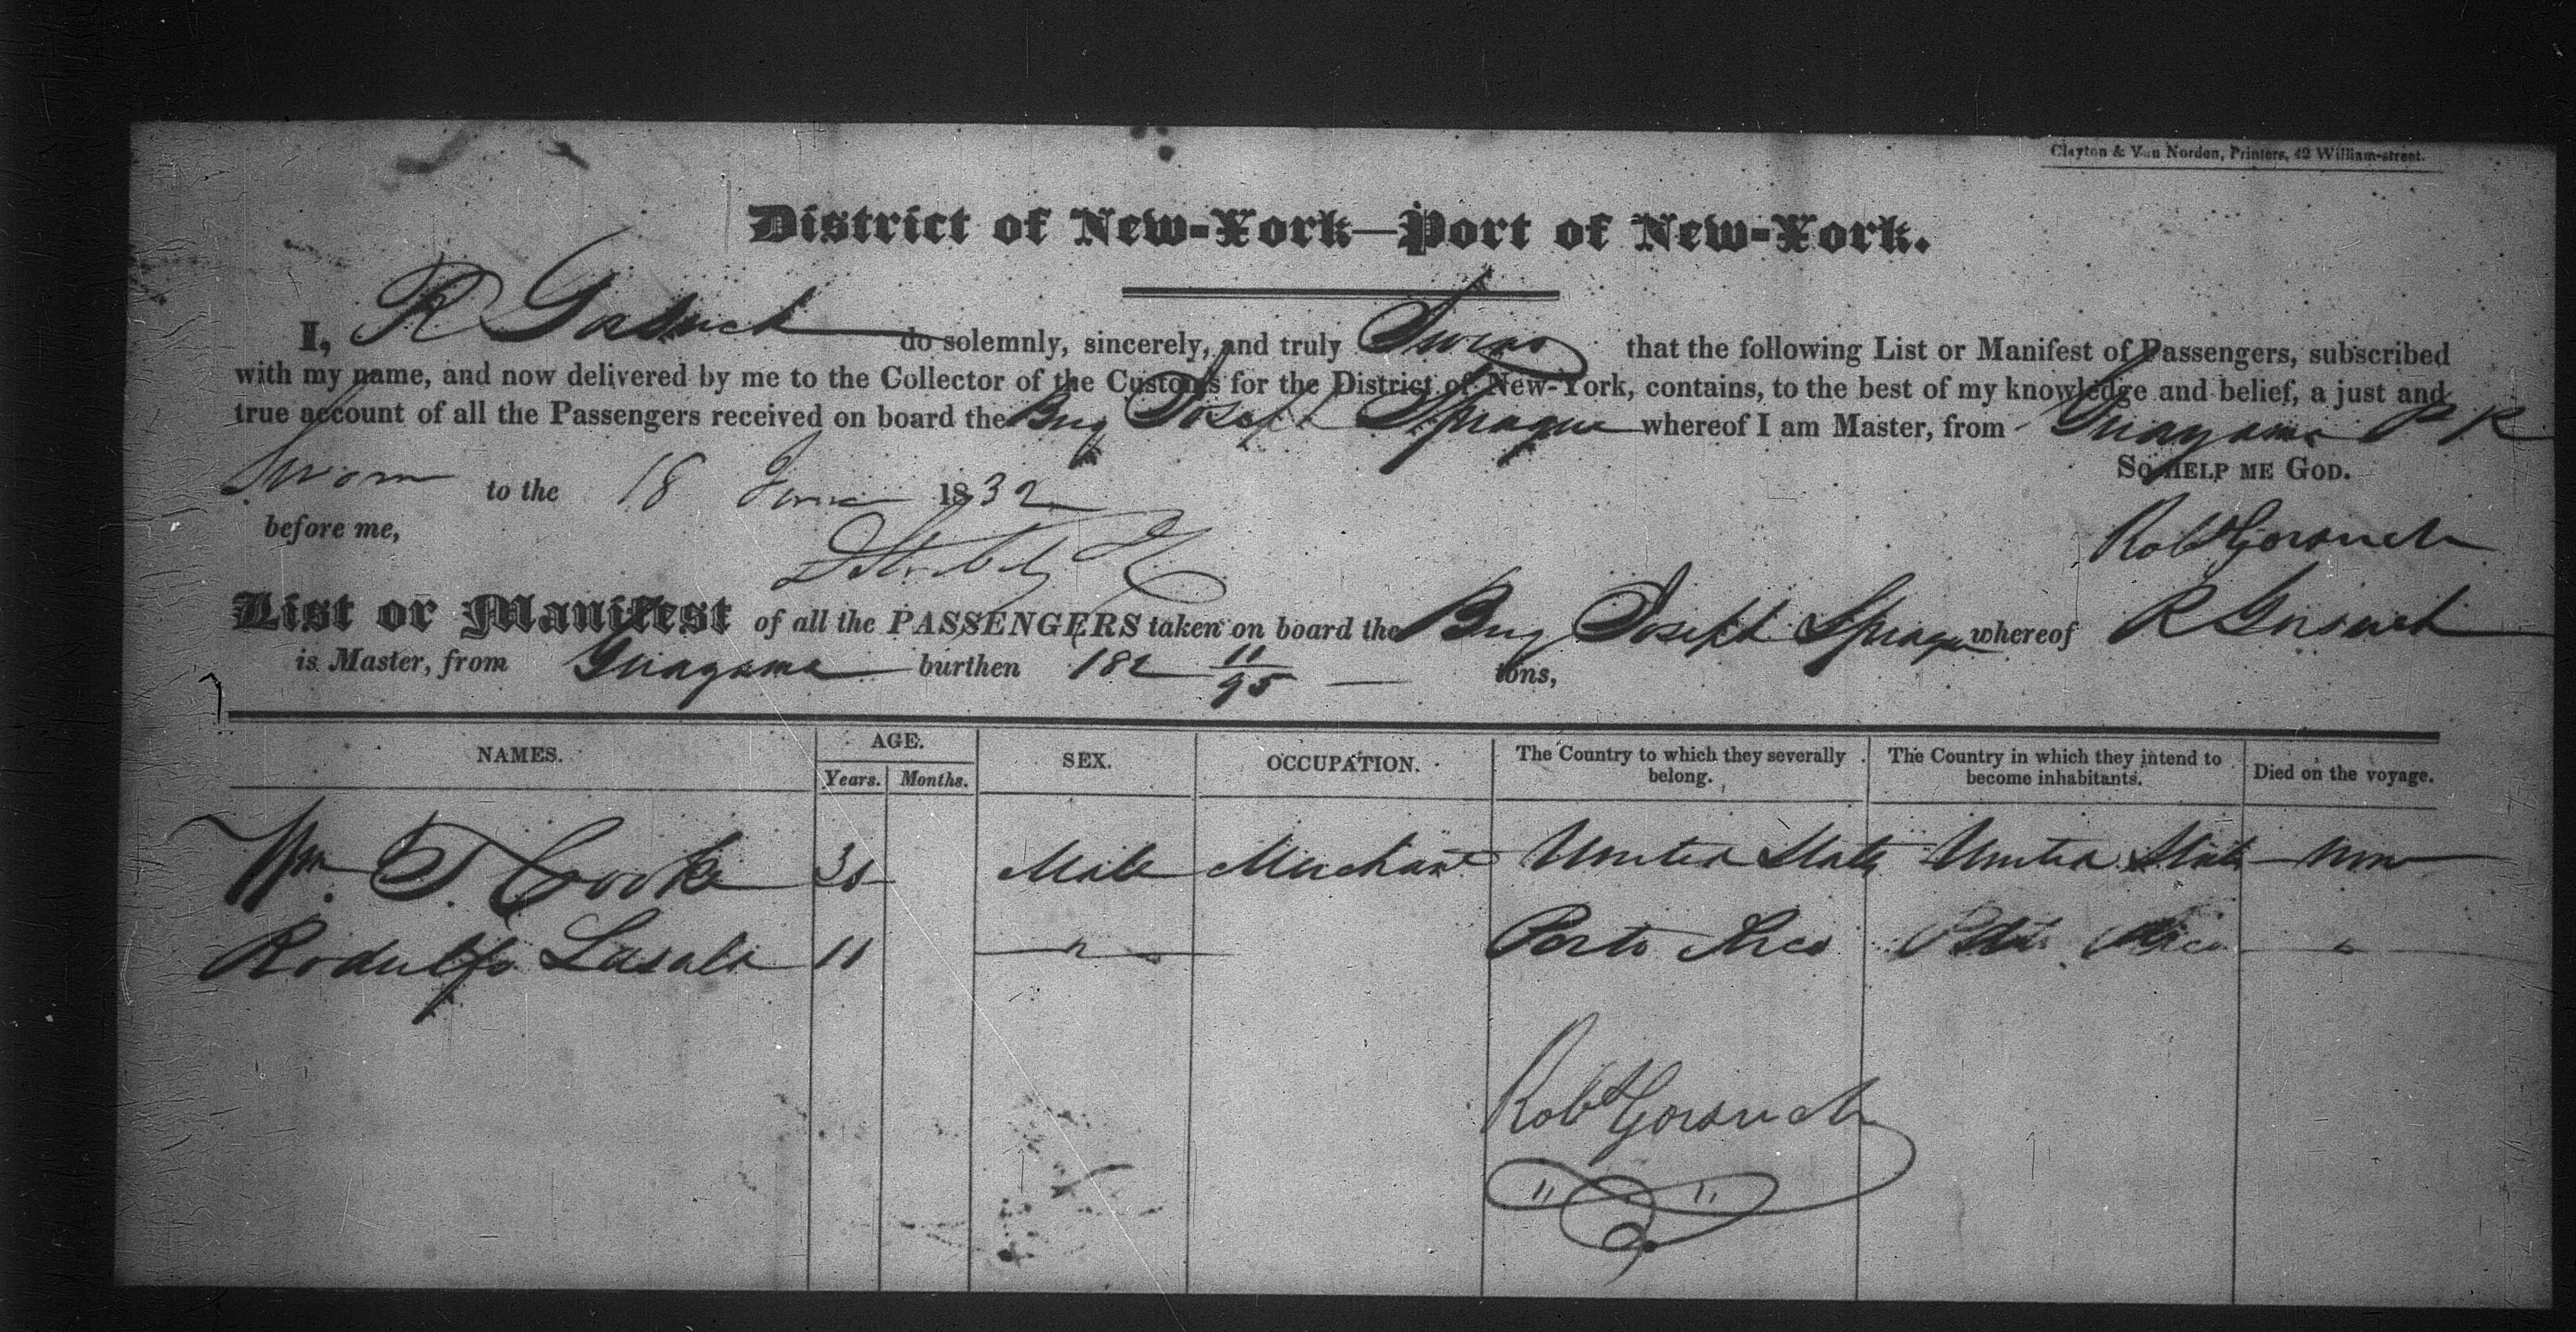 Clayton & Van Norden, Printers, 42 William-street.
District of New-York—Port of New-York.
I, R Gorsuch do solemnly, sincerely, and truly Swear that the following List or Manifest of Passengers, subscribed
with my name, and now delivered by me to the Collector of the Customs for the District of New-York, contains, to the best of my knowledge and belief, a just and
true account of all the Passengers received on board the Brig Joseph Sprague whereof I am Master, from Guayama P R
Sworn to the 18 June 1832 So help me God.
before me,
Robt Gorsuch
List or Manifest of all the PASSENGERS taken on board the Brig Joseph Sprague whereof R Gorsuch
is Master, from Guayama burthen 182 11/95 tons,
NAMES. AGE. SEX. OCCUPATION. The Country to which they severally belong. The Country in which they intend to become inhabitants. Died on the voyage.
Years. Months.
Wm T. Cooke 30 Male Merchant United States United States non
Rodulfo Lasala 11 " Porto Rico Porto Rico "
Robt Gorsuch